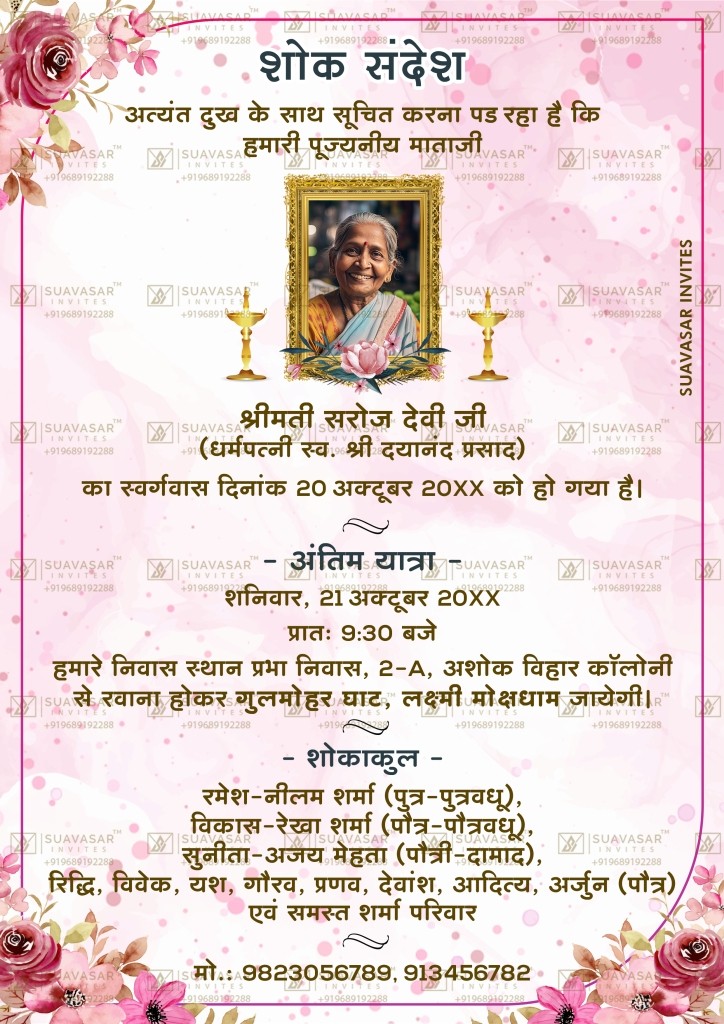 शोक संदेश
अत्यंत दुख के साथ सूचित करना पड रहा है कि
हमारी पूज्यनीय माताजी
SUAVASAR INVITES
श्रीमती सरोज देवी जी
(धर्मपत्नी स्व. श्री दयानंद प्रसाद)
का स्वर्गवास दिनांक 20 अक्टूबर 20XX को हो गया है।
- अंतिम यात्रा -
शनिवार, 21 अक्टूबर 20XX
प्रातः 9:30 बजे
हमारे निवास स्थान प्रभा निवास, 2-A, अशोक विहार कॉलोनी
से रवाना होकर गुलमोहर घाट, लक्ष्मी मोक्षधाम जायेगी।
- शोकाकुल -
रमेश-नीलम शर्मा (पुत्र-पुत्रवधू),
विकास-रेखा शर्मा (पौत्र-पौत्रवधू),
सुनीता-अजय मेहता (पौत्री-दामाद),
रिद्धि, विवेक, यश, गौरव, प्रणव, देवांश, आदित्य, अर्जुन (पौत्र)
एवं समस्त शर्मा परिवार
मो.: 9823056789, 913456782
SUAVASAR™
INVITES
+919689192288